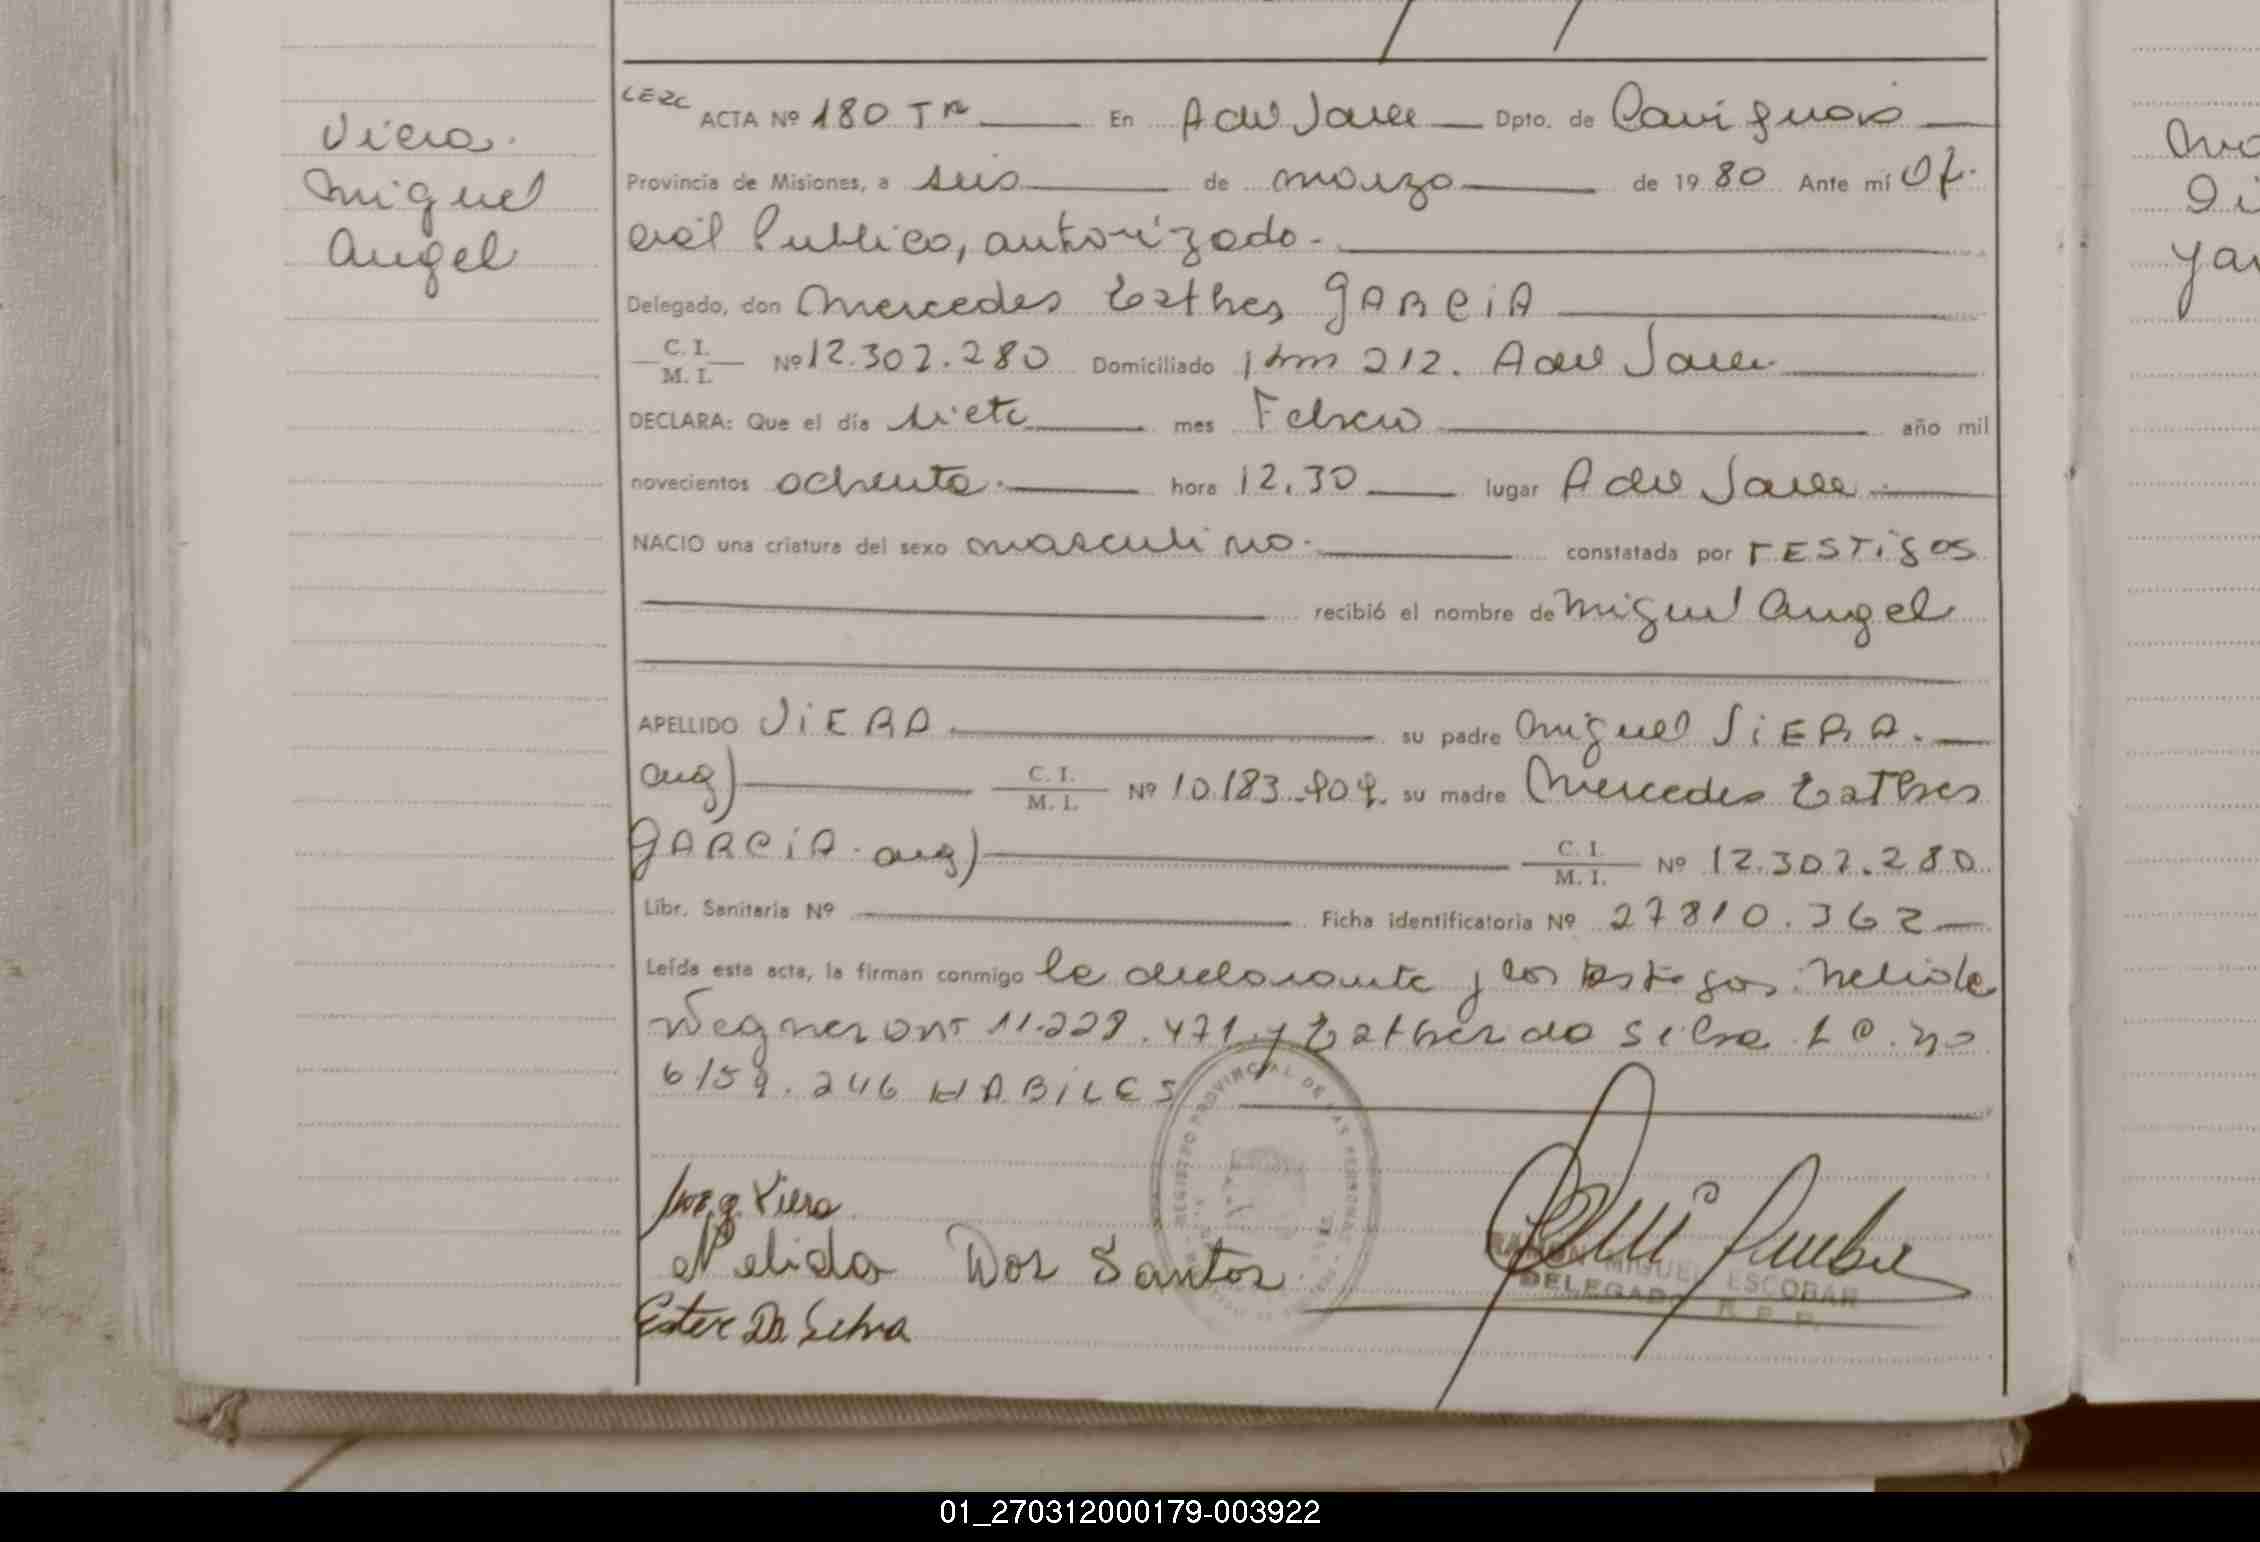 Viera
Miguel
Angel
ACTA Nº 180 Tº En A del Valle Dpto. de Cainguas
Provincia de Misiones, a seis de marzo de 1980 Ante mí Ofi
cial Publico, autorizado.
Delegado, don Mercedes Esther GARCiA
C. I.
M. I. Nº 12.302.280 Domiciliado Km 212. A del Valle
DECLARA: Que el día siete mes Febrero año mil
novecientos ochenta hora 12.30 lugar A del Valle
NACIO una criatura del sexo masculino constatada por TESTigos
recibió el nombre de Miguel Angel
APELLIDO ViERA su padre Miguel ViERA.
arg) C. I.
M. I. Nº 10.183.909 su madre Mercedes Esther
GARCiA arg) C. I.
M. I. Nº 12.302.280
Libr. Sanitaria Nº Ficha identificatoria Nº 27810.362
Leída esta acta, la firman conmigo la declarante y los testigos: Nelida
Wegner DNI 11.229.471 y Esther da Silva L C. no
6159.246 HABiLES
REGISTRO PROVINCIAL DE LAS PERSONAS
Viera
Nelida Dos Santos
Ester Da Selva
RAMON MIGUEL ESCOBAR
DELEGADO R. P. P.
Ma
yar
01_270312000179-003922